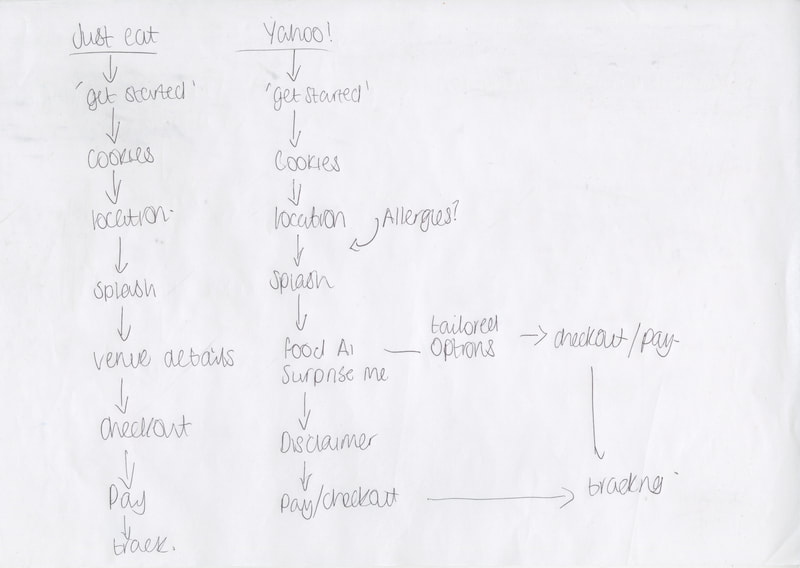 Just eat
'get started'
Cookies
location
splash
venue details
checkout
Pay
track.
Yahoo!
'get started'
Cookies
location
Allergies?
splash
Food Ai
Surprise me
Disclaimer
Pay/checkout
tailored
Options
checkout/pay
trackng